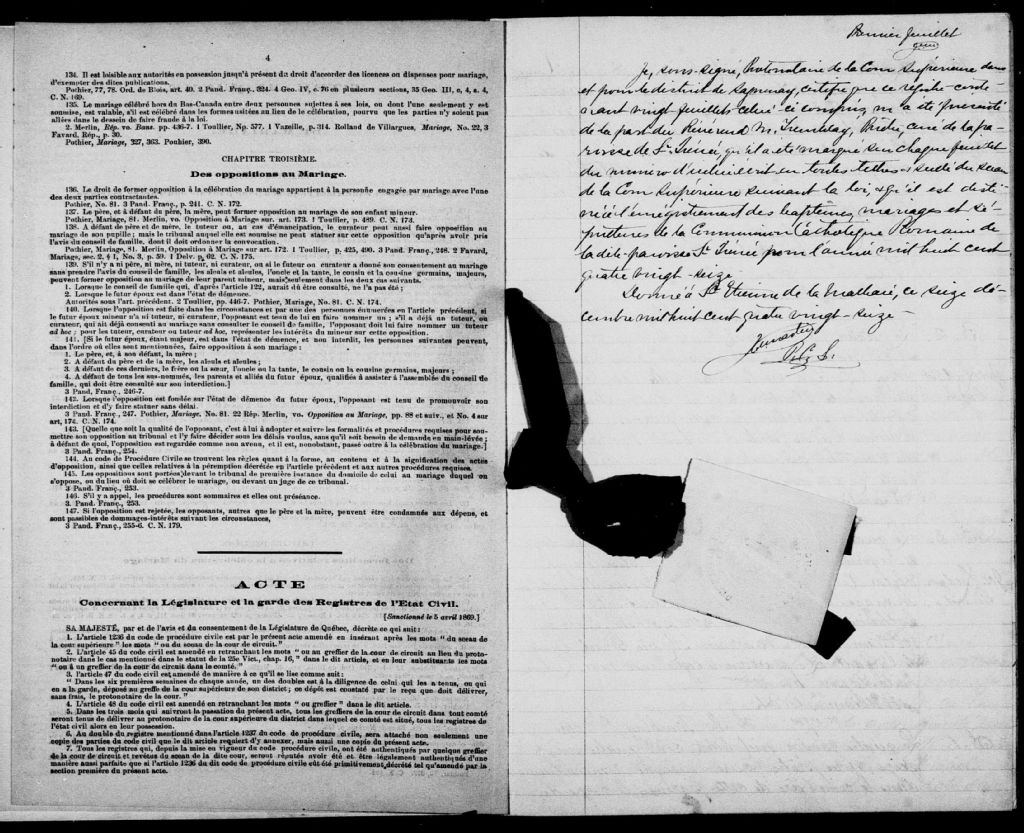 4
134. Il est loisible aux autorités en possession jusqu'à présent du droit d'accorder des licences ou dispenses pour mariage,
d'exempter des dites publications.
Pothier, 77, 78. Ord. de Blois, art. 40. 2 Pand. Franç., 324. 4 Geo. IV, c. 76 en plusieurs sections, 35 Geo. III, c, 4, s. 4,
C. N. 169.
135. Le mariage célébré hors du Bas-Canada entre deux personnes sujettes à ses lois, ou dont l'une seulement y est
soumise, est valable, s'il est célébré dans les formes usitées au lieu de la célébration, pourvu que les parties n'y soient pas
allées dans le dessein de faire fraude à la loi.
2. Merlin, Rép. vo. Bans. pp. 436-7. 1 Toullier, Np. 577. 1 Vazeille, p. 314. Rolland de Villargues, Mariage, No. 22, 3
Favard, Rép., p. 30.
Pothier, Mariage, 327, 363. Pouhier, 390.
CHAPITRE TROISIÈME.
Des oppositions au Mariage.
136. Le droit de former opposition à la célébration du mariage appartient à la personne engagée par mariage avec l'une
des deux parties contractantes.
Pothier, No. 81. 3 Pand. Franç., p. 241. C. N. 172.
137. Le père, et à défaut du père, la mère, peut former opposition au mariage de son enfant mineur.
Pothier, Mariage, 81. Merlin, vo. Opposition à Mariage sur. art. 173. 1 Toullier, p. 489. C. N. 173.
138. A défaut de père et de mère, le tuteur ou, au cas d'émancipation, le curateur peut aussi faire opposition au
mariage de son pupille ; mais le tribunal auquel elle est soumise ne peut statuer sur cette opposition qu'après avoir pris
l'avis du conseil de famille, dont il doit ordonner la convocation.
Pothier, Mariage, 81. Merlin, Opposition à Mariage sur art. 172. 1 Toullier, p. 425, 490. 3 Pand. Franç., 248. 2 Favard,
Mariage, sec. 2, § 1, No. 3, p. 59. 1 Delv. p. 62. C. N. 175.
139. S'il n'y a ni père, ni mère, ni tuteur, ni curateur, ou si le tuteur ou curateur a donné son consentement au mariage
sans prendre l'avis du conseil de famille, les aïeuls et aïeules, l'oncle et la tante, le cousin et la cousine germains, majeurs,
peuvent former opposition au mariage de leur parent mineur, mais seulement dans les deux cas suivants.
1. Lorsque le conseil de famille qui, d'après l'article 122, aurait dû être consulté, ne l'a pas été ;
2. Lorsque le futur époux est dans l'état de démence.
Autorités sous l'art. précédent. 2 Toullier, pp. 446-7. Pothier, Mariage, No. 81. C. N. 174.
140. Lorsque l'opposition est faite dans les circonstances et par une des personnes énumérées en l'article précédent, si
le futur époux mineur n'a ni tuteur, ni curateur, l'opposant est tenu de lui en faire nommer un ; s'il a déjà un tuteur, ou
curateur, qui ait déjà consenti au mariage sans consulter le conseil de famille, l'opposant doit lui faire nommer un tuteur
ad hoc ; pour les tuteur, curateur ou tuteur ad hoc, représenter les intérêts du mineur sur cette opposition.
141. [Si le futur époux, étant majeur, est dans l'état de démence, et non interdit, les personnes suivantes peuvent,
dans l'ordre où elles sont mentionnées, faire opposition à son mariage :
1. Le père, et, à son défaut, la mère ;
2. A défaut du père et de la mère, les aïeuls et aïeules ;
3. A défaut de ces derniers, le frère ou la sœur, l'oncle ou la tante, le cousin ou la cousine germains, majeurs ;
4. A défaut de tous les sus-nommés, les parents et alliés du futur époux, qualifiés à assister à l'assemblée du conseil de
famille, qui doit être consulté sur son interdiction.]
3 Pand. Franç., 246-7.
142. Lorsque l'opposition est fondée sur l'état de démence du futur époux, l'opposant est tenu de promouvoir son
interdiction et d'y faire statuer sans délai.
3 Pand. Franç., 247. Pothier, Mariage, No. 81. 22 Rép. Merlin, vo. Opposition au Mariage, pp. 88 et suiv., et No. 4 sur
art, 174. C. N. 174.
143. [Quelle que soit la qualité de l'opposant, c'est à lui à adopter et suivre les formalités et procédures requises pour sou-
mettre son opposition au tribunal et l'y faire décider sous les délais voulus, sans qu'il soit besoin de demande en main-levée ;
à défaut de quoi, l'opposition est regardée comme non avenu, et il est, nonobstant, passé outre à la célébration du mariage.]
3 Pand. Franç., 254.
144. Au code de Procédure Civile se trouvent les règles quant à la forme, au contenu et à la signification des actes
d'opposition, ainsi que celles relatives à la péremption décrétée en l'article précédent et aux autres procédures requises.
145. Les oppositions sont portées devant le tribunal de première instance du domicile de celui au mariage duquel on
s'oppose, ou du lieu où doit se célébrer le mariage, ou devant un juge de ce tribunal.
3 Pand. Franç., 253.
146. S'il y a appel, les procédures sont sommaires et elles ont préséance.
3. Pand. Franç., 253.
147. Si l'opposition est rejetée, les opposants, autres que le père et la mère, peuvent être condamnés aux dépens, et
sont passibles de dommages-intérêts suivant les circonstances,
3 Pand. Franç., 255-6. C. N. 179.
ACTE
Concernant la Législature et la garde des Registres de l'Etat Civil.
[Sanctionné le 5 avril 1869.]
SA MAJESTÉ, par et de l'avis et du consentement de la Législature de Québec, décrète ce qui suit :
1. L'article 1236 du code de procédure civile est par le présent acte amendé en insérant après les mots " du sceau de
la cour supérieure " les mots " ou du sceau de la cour de circuit."
2. L'article 45 du code civil est amendé en retranchant les mots " ou au greffier de la cour de circuit au lieu du proto-
notaire dans le cas mentionné dans le statut de la 25e Vict., chap. 16," dans le dit article, et en leur substituant les mots
" ou à un greffier de la cour de circuit dans le comté."
3. l'article 47 du code civil est amendé de manière à ce qu'il se lise comme suit :
" Dans les six premières semaines de chaque année, un des doubles est à la diligence de celui qui les a tenus, ou qui
en a la garde, déposé au greffe de la cour supérieure de son district ; ce dépôt est constaté par le reçu que doit délivrer,
sans frais, le protonotaire de la cour. "
4. L'article 48 du code civil est amendé en retranchant les mots " ou greffier " dans le dit article.
5. Dans les trois mois qui suivront la passation du présent acte, tous les greffiers de la cour de circuit dans tout comté
seront tenus de délivrer au protonotaire de la cour supérieure du district dans lequel ce comté est situé, tous les registres de
l'état civil alors en leur possession.
6. Au double du registre mentionné dans l'article 1237 du code de procédure civile, sera attaché non seulement une
copie des parties du code civil que le dit article requiert d'y annexer, mais aussi une copie du présent acte.
7. Tous les registres qui, depuis la mise en vigueur du code procédure civile, ont été authentiqués par quelque greffier
de la cour de circuit et revêtus du sceau de la dite cour, seront réputés avoir été et être légalement authentiqués d'une
manière aussi parfaite que si l'article 1236 du dit code de procédure civile eût été primitivement décrété tel qu'amendé par la
section première du présent acte.
Dernier feuillet
Je, sous-signé, Protonotaire de la Cour Supérieure dans
et pour le district de Saguenay, certifie que ce registre conte-
nant vingt feuillets celui-ci compris, m'a été présenté
de la part du Révérend M. Tremblay, Prêtre, curé de la pa-
roisse de St Irénée, qu'il a été marqué sur chaque feuillet
du numéro d'icelui écrit en toutes lettres & scellé du sceau
de la Cour Supérieure suivant la loi & qu'il est desti-
né à l'enregistrement des baptêmes, mariages et sé-
pultures de la Communion Catholique Romaine de
la dite paroisse St Irénée pour l'année mil huit cent
quatre vingt-seize
Donné à St Etienne de la Malbaie, ce seize dé-
cembre mil huit cent quatre vingt-seize-
P. C. S.